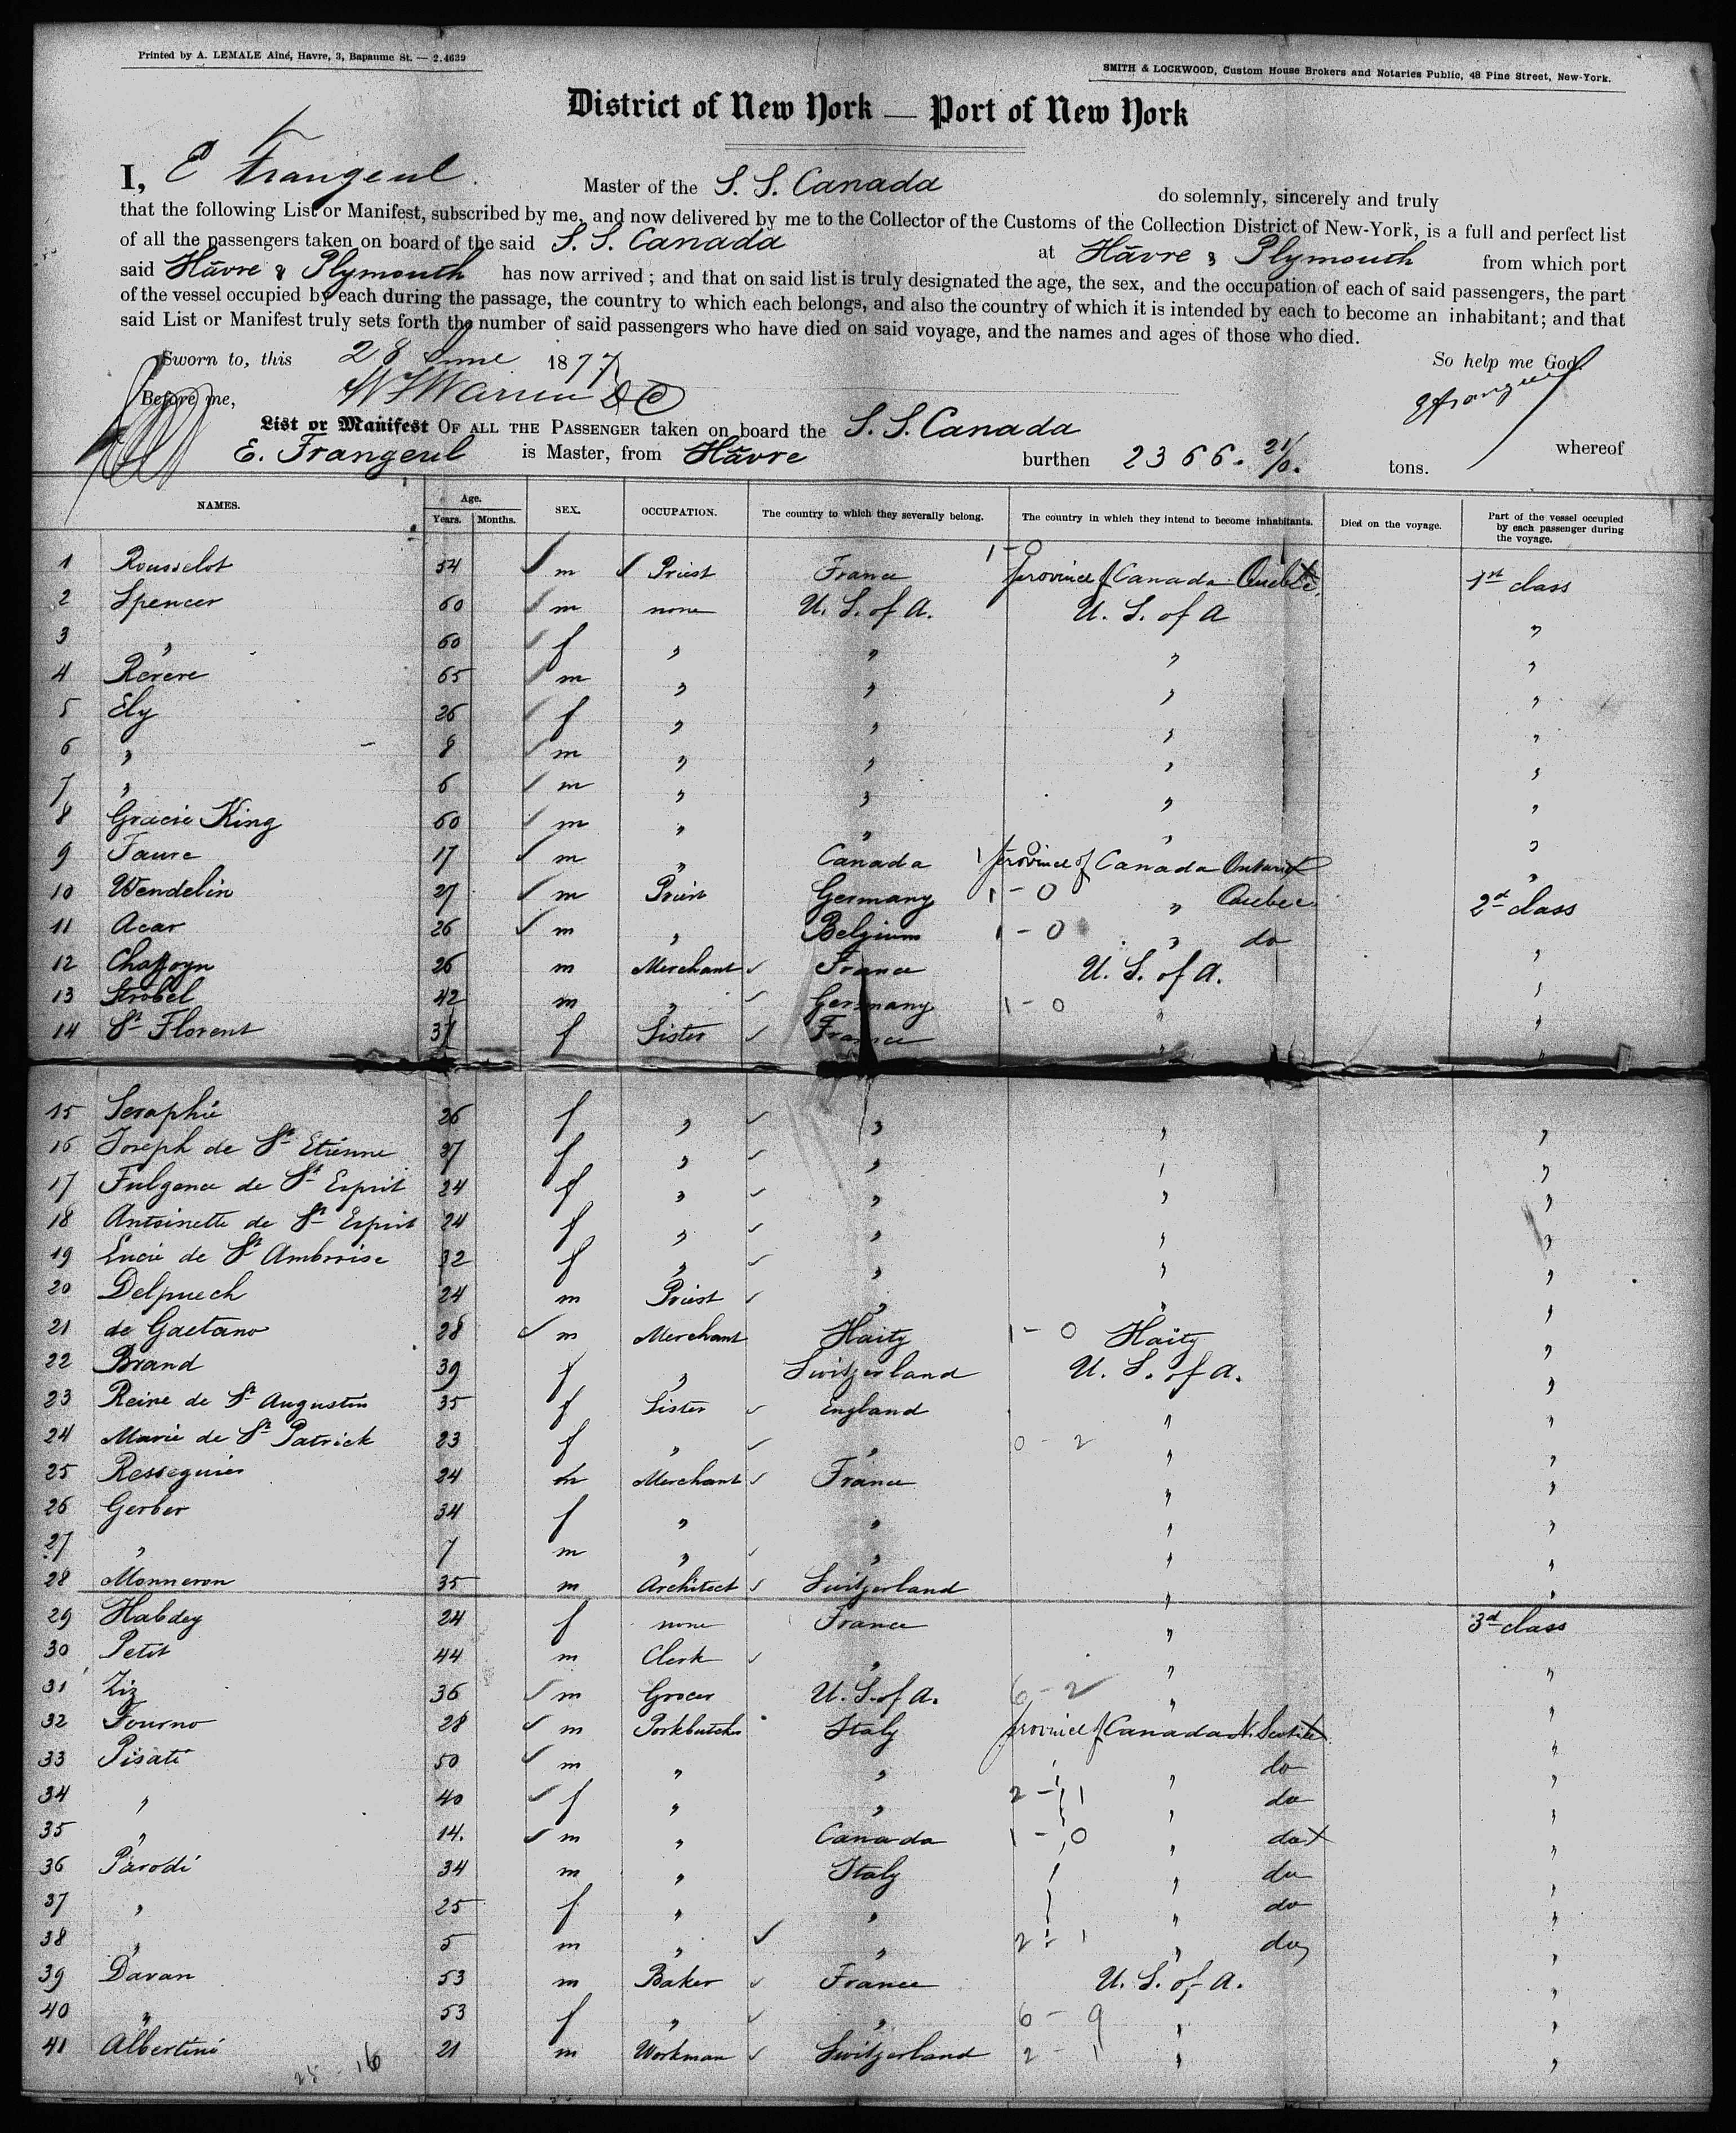 Printed by A. LEMALE Aîné, Havre, 3, Bapaume St. — 2.4639
SMITH & LOCKWOOD, Custom House Brokers and Notaries Public, 48 Pine Street, New-York.
District of New York — Port of New York
I, E Frangeul. Master of the S. S. Canada do solemnly, sincerely and truly
that the following List or Manifest, subscribed by me, and now delivered by me to the Collector of the Customs of the Collection District of New-York, is a full and perfect list
of all the passengers taken on board of the said S. S. Canada at Hâvre & Plymouth from which port
said Hâvre & Plymouth has now arrived; and that on said list is truly designated the age, the sex, and the occupation of each of said passengers, the part
of the vessel occupied by each during the passage, the country to which each belongs, and also the country of which it is intended by each to become an inhabitant; and that
said List or Manifest truly sets forth the number of said passengers who have died on said voyage, and the names and ages of those who died.
Sworn to, this 28 June 1877 So help me God.
Before me,
List or Manifest OF ALL THE PASSENGER taken on board the S. S. Canada whereof
E. Frangeul is Master, from Hâvre burthen 2366. tons.
NAMES. Age. Years. Months. SEX. OCCUPATION. The country to which they severally belong. The country in which they intend to become inhabitants. Died on the voyage. Part of the vessel occupied by each passenger during the voyage.
1 Rousselot 54 m Priest France 1 - 0 province of Canada Quebec 1st class
2 Spencer 60 m none U. S. of A. U. S. of A "
3 " 60 f " " " "
4 Revere 65 m " " " "
5 Ely 26 f " " " "
6 " 8 m " " " "
7 " 6 m " " " "
8 Gracie King 60 m " " " "
9 Faure 17 m " Canada 1 province of Canada Ontario "
10 Wendelin 27 m Priest Germany 1 - 0 " Quebec 2d class
11 Acar 26 m " Belgium 1 - 0 " do "
12 26 m Merchant France U. S. of A. "
13 Strobel 42 m " Germany 1 - 0 " "
14 St Florent 37 f Sister France " "
15 Seraphie 26 f " " " "
16 Joseph de St Etienne 37 f " " " "
17 Fulgence de St Esprit 24 f " " " "
18 Antoinette de St Esprit 24 f " " " "
19 Lucie de St Ambroise 32 f " " " "
20 Delpuech 24 m Priest " " "
21 de Gaetano 28 m Merchant Haity 1 - 0 Haïty "
22 Brand 39 f " Switzerland U. S. of A. "
23 Reine de St Augustin 35 f Sister England " "
24 Marie de St Patrick 23 f " " 0 - 2 " "
25 Resseguier 24 m Merchant France " "
26 Gerber 34 f " " " "
27 " 7 m " " " "
28 Monneron 35 m Architect Switzerland " "
29 Habdey 24 f none France " 3d class
30 Petit 44 m Clerk " " "
31 Ziz 36 m Grocer U. S. of A. 6 - 2 " "
32 Fourno 28 m Porkbutcher Italy province of Canada N. Scotia "
33 Pisati 50 m " " " do "
34 " 40 f " " 2 - 1 " do "
35 " 14. m " Canada 1 - 0 " do "
36 Parodi 34 m " Italy " do "
37 " 25 f " " " do "
38 " 5 m " " 2 - 1 " do "
39 Davan 53 m Baker France U. S. of A. "
40 " 53 f " " 6 - 9 " "
41 Albertini 21 m Workman Switzerland 2 - 1 " "
25 - 16